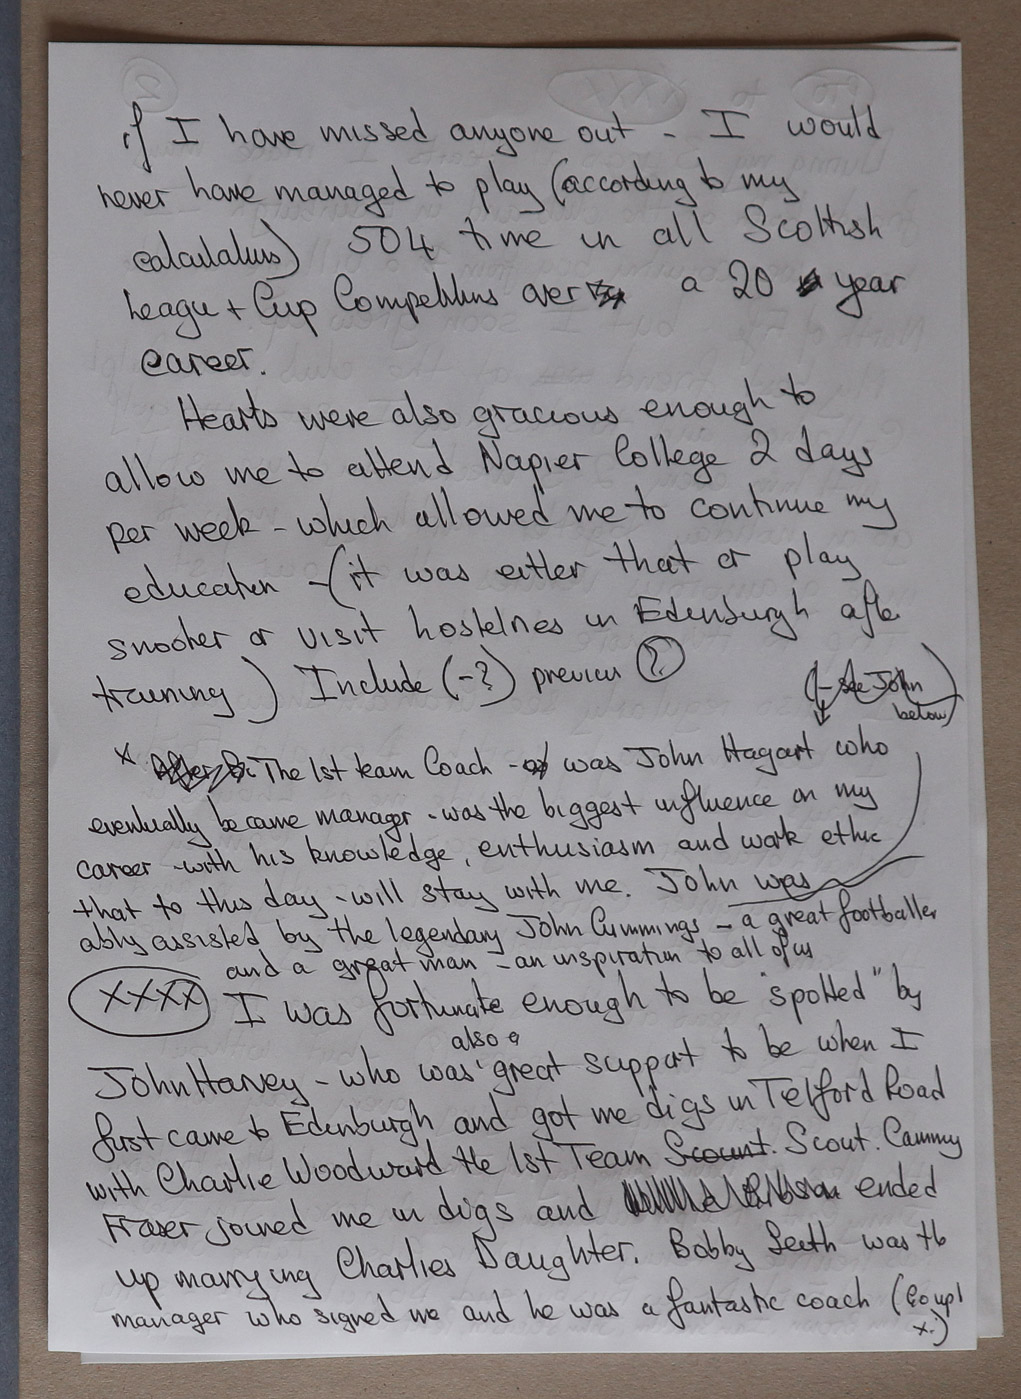 if I have missed anyone out - I would
never have managed to play (according to my
calculatins) 504 time in all Scottish
League + Cup Competitins over a 20 year
career.
Hearts were also gracious enough to
allow me to attend Napier College 2 days
per week - which allowed me to continue my
educatin - (it was either that or play
snooker or visit hostelries in Edinburgh afte
training) Include (-?) previous ?
(- see John
below)
x The 1st team Coach - was John Hagart who
eventually became manager - was the biggest influence on my
career - with his knowledge, enthusiasm and work ethic
that to this day - will stay with me. John was
ably assisted by the legendary John Cummings - a great footballer
and a great man - an inspiration to all of us
XXXX I was fortunate enough to be "spotted" by
also a
John Harvey - who was great support to be when I
first came to Edinburgh and got me digs in Telford Road
with Charlie Woodward the 1st Team Scount. Scout. Cammy
Fraser joined me in digs and ended
up marrying Charlies Daughter. Bobby Seith was the
manager who signed me and he was a fantastic coach (Go up
x.)